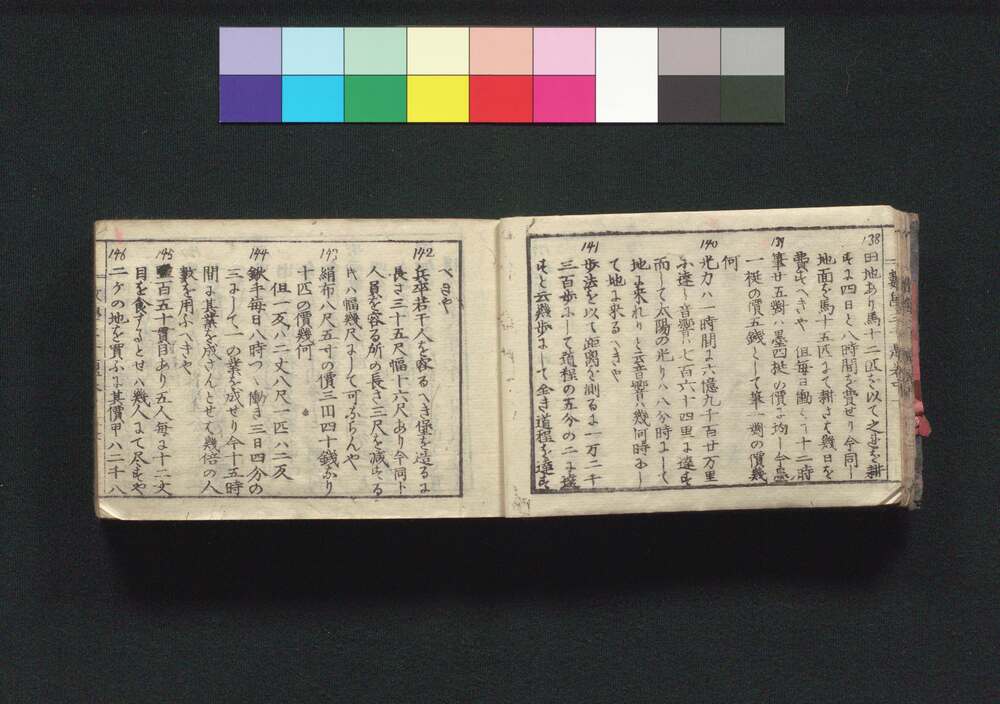 138
田地あり馬十二匹を以て之を耕
すに四日と八時間を費せり今同し
地面を馬十五匹にて耕さは幾日を
費すへきや 但毎日働く十二時
139
筆廿五對ハ墨四挺の價に均し今墨
一挺の價五錢として筆一對の價幾
何
140
光力ハ一時間に六億九千百廿万里
に達し音響ハ七百六十四里に達す
而して太陽の光りハ八分時にして
地に來れりと云音響ハ幾何時にし
て地に來るへきや
141
歩法を以て距離を測るに一万二千
三百歩にして道程の五分の二に達
すと云幾歩にして全き道程を達す
べきや
142
兵卒若干人を容るへき堡を造るに
長さ三十五尺幅十六尺あり今同し
人員を容る所の長さ三尺を減する
時ハ幅幾尺にして可ならんや
143
絹布八尺五寸の價三円四十錢なり
十匹の價幾何
但一反ハ二丈八尺一匹ハ二反
144
鍬手毎日八時つゝ働き三日四分の
三にして一の業を成せり今十五時
間に其業を成さんとせハ幾倍の人
數を用ふへきや
145
百五十貫目あり五人毎に十二丈
目を食するとせハ幾人にて尽すや
146
二ケの地を買ふに其價甲ハ二千八